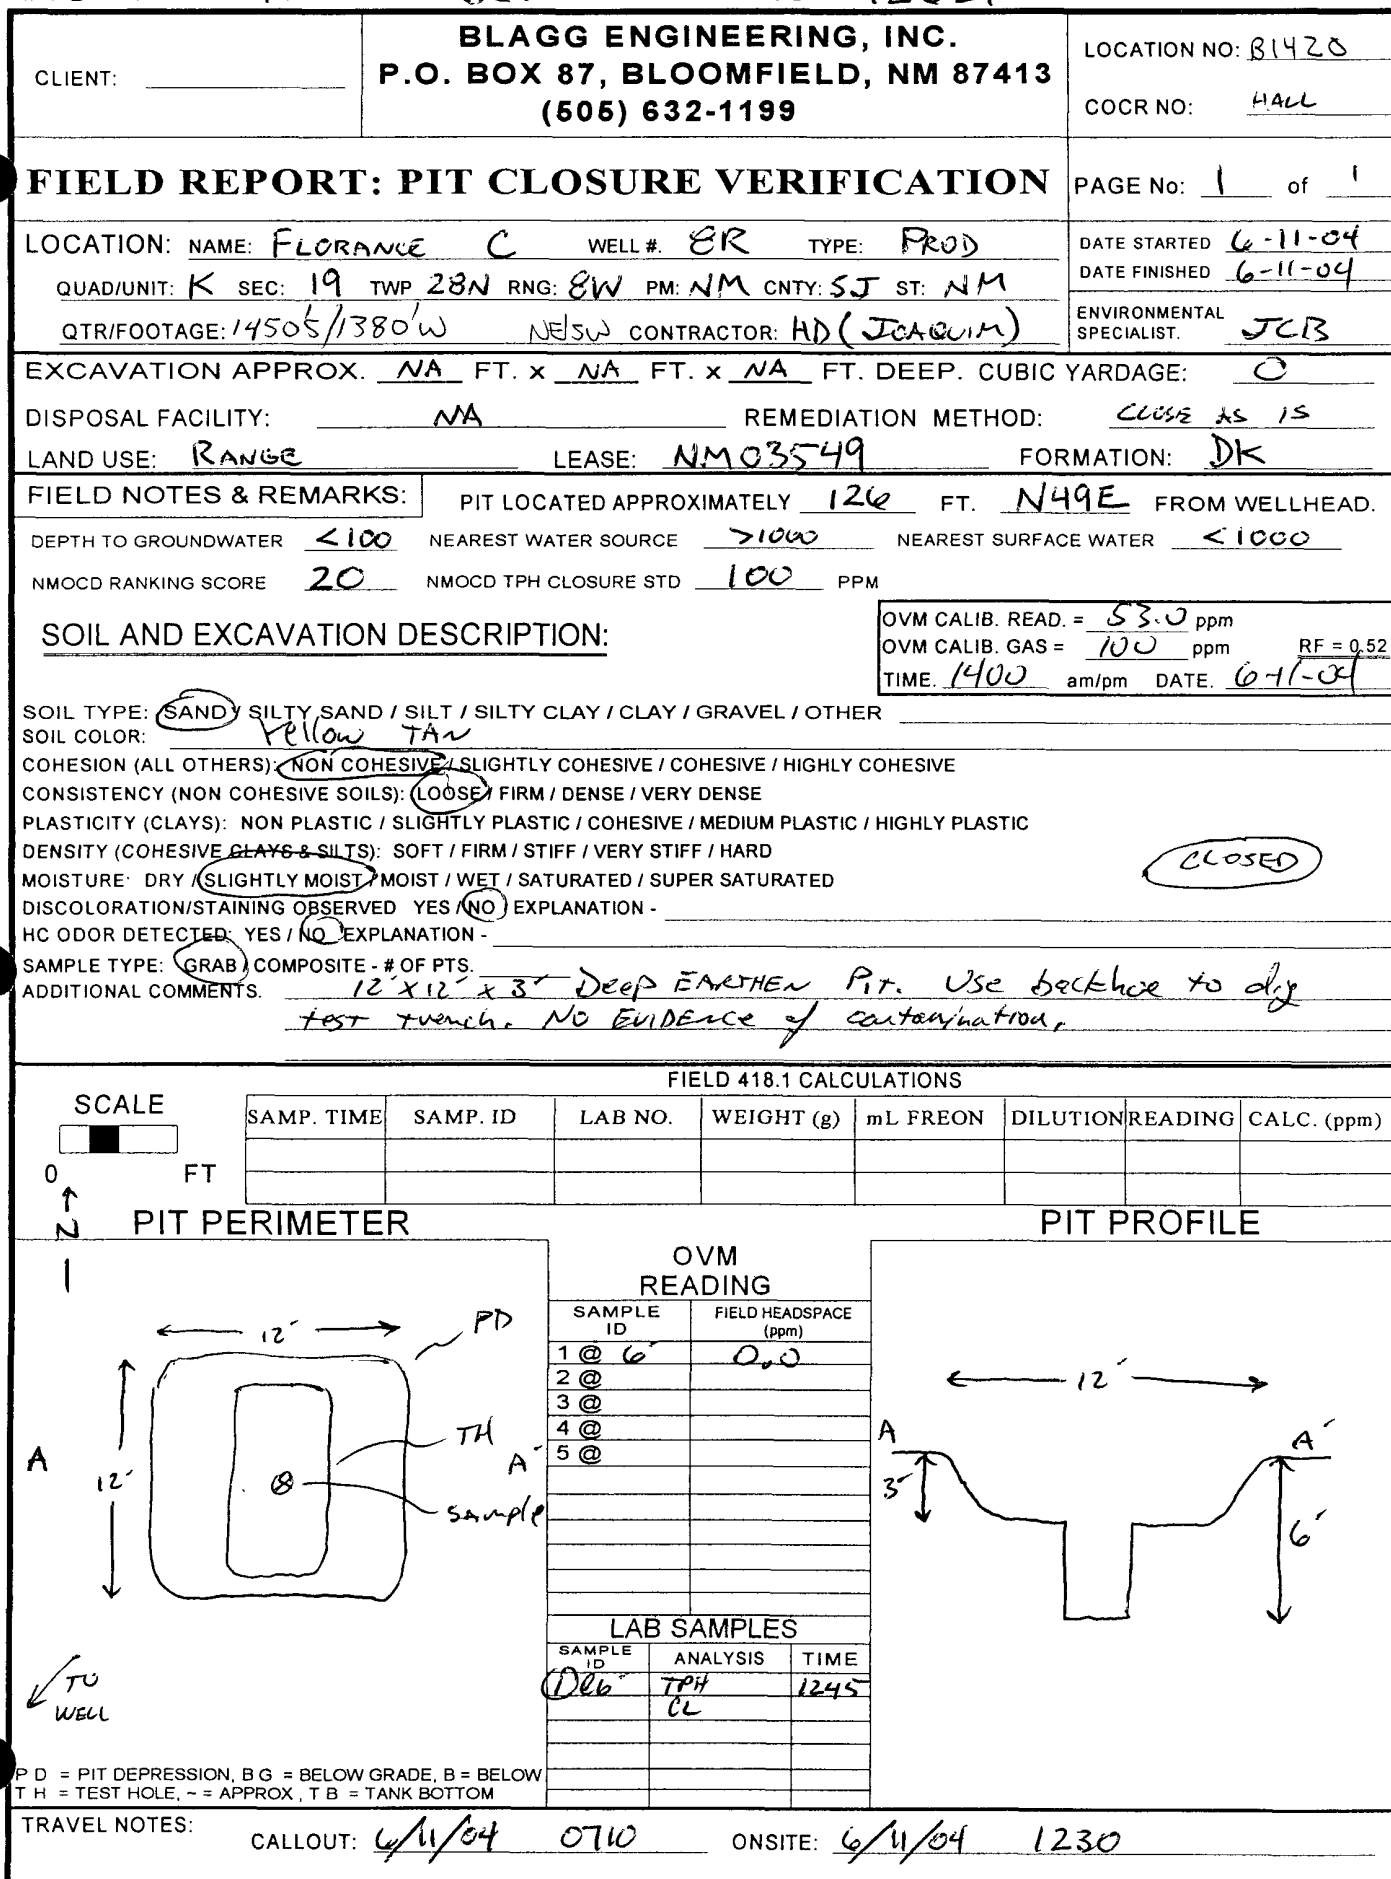 BLAGG ENGINEERING, INC.
P.O. BOX 87, BLOOMFIELD, NM 87413
(505) 632-1199
CLIENT:
LOCATION NO: B1420
COCR NO: HALL
FIELD REPORT: PIT CLOSURE VERIFICATION
PAGE No: 1 of 1
LOCATION: NAME: FLORANCE C WELL #. 8R TYPE: PROD
QUAD/UNIT: K SEC: 19 TWP 28N RNG: 8W PM: NM CNTY: SJ ST: NM
QTR/FOOTAGE: 1450'S/1380'W NE/SW CONTRACTOR: HD (JOAQUIM)
DATE STARTED 6-11-04
DATE FINISHED 6-11-04
ENVIRONMENTAL
SPECIALIST. JCB
EXCAVATION APPROX. NA FT. x NA FT. x NA FT. DEEP. CUBIC YARDAGE: 0
DISPOSAL FACILITY: NA REMEDIATION METHOD: CLOSE AS IS
LAND USE: RANGE LEASE: NM03549 FORMATION: DK
FIELD NOTES & REMARKS: PIT LOCATED APPROXIMATELY 126 FT. N49E FROM WELLHEAD.
DEPTH TO GROUNDWATER <100 NEAREST WATER SOURCE >1000 NEAREST SURFACE WATER <1000
NMOCD RANKING SCORE 20 NMOCD TPH CLOSURE STD 100 PPM
SOIL AND EXCAVATION DESCRIPTION:
OVM CALIB. READ. = 53.0 ppm
OVM CALIB. GAS = 100 ppm RF = 0.52
TIME. 1400 am/pm DATE. 6-11-04
SOIL TYPE: SAND / SILTY SAND / SILT / SILTY CLAY / CLAY / GRAVEL / OTHER
SOIL COLOR: Yellow TAN
COHESION (ALL OTHERS): NON COHESIVE / SLIGHTLY COHESIVE / COHESIVE / HIGHLY COHESIVE
CONSISTENCY (NON COHESIVE SOILS): LOOSE / FIRM / DENSE / VERY DENSE
PLASTICITY (CLAYS): NON PLASTIC / SLIGHTLY PLASTIC / COHESIVE / MEDIUM PLASTIC / HIGHLY PLASTIC
DENSITY (COHESIVE CLAYS & SILTS): SOFT / FIRM / STIFF / VERY STIFF / HARD
CLOSED
MOISTURE: DRY / SLIGHTLY MOIST / MOIST / WET / SATURATED / SUPER SATURATED
DISCOLORATION/STAINING OBSERVED YES / NO EXPLANATION -
HC ODOR DETECTED: YES / NO EXPLANATION -
SAMPLE TYPE: GRAB / COMPOSITE - # OF PTS.
ADDITIONAL COMMENTS. 12' x 12' x 3' Deep EARTHEN Pit. Use backhoe to dig
test trench. NO EVIDENCE of contamination.
FIELD 418.1 CALCULATIONS
SCALE
0 FT
SAMP. TIME SAMP. ID LAB NO. WEIGHT (g) mL FREON DILUTION READING CALC. (ppm)
N
PIT PERIMETER
12'
PD
A
12'
TH
A'
Sample
TO
WELL
P D = PIT DEPRESSION, B G = BELOW GRADE, B = BELOW
T H = TEST HOLE, ~ = APPROX, T B = TANK BOTTOM
OVM
READING
SAMPLE ID FIELD HEADSPACE (ppm)
1 @ 6' 0.0
2 @
3 @
4 @
5 @
LAB SAMPLES
SAMPLE ID ANALYSIS TIME
1@6' TPH 1245
CL
PIT PROFILE
12'
A
A'
3'
6'
TRAVEL NOTES: CALLOUT: 6/11/04 0710 ONSITE: 6/11/04 1230